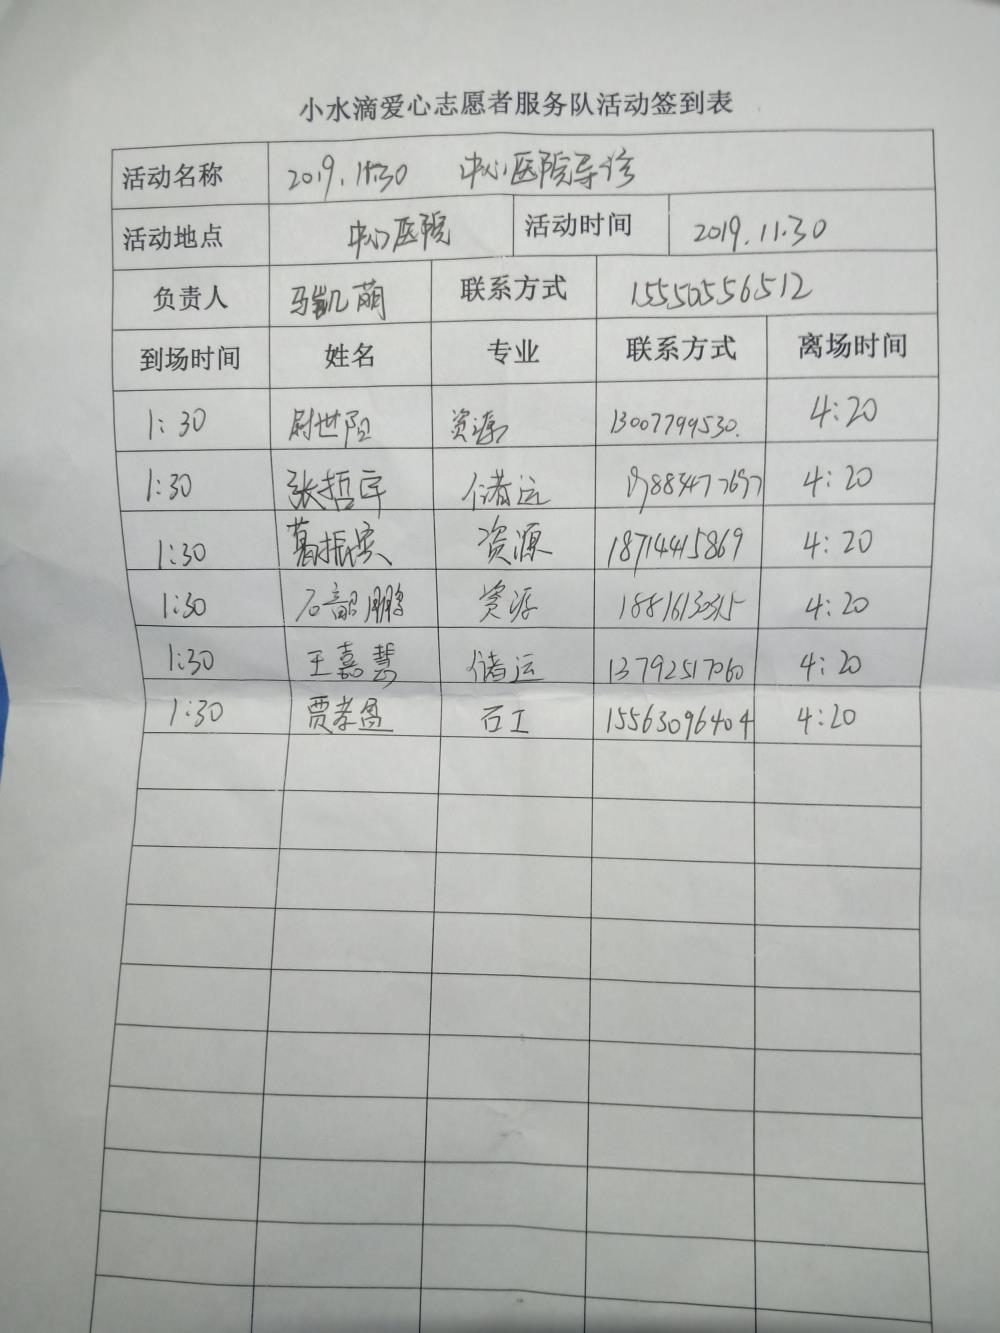 小水滴爱心志愿者服务队活动签到表
活动名称 2019.11.30 中心医院导诊
活动地点 中心医院 活动时间 2019.11.30
负责人 马凯萌 联系方式 15550556512
到场时间 姓名 专业 联系方式 离场时间
1:30 尉世阳 资源 13007799530. 4:20
1:30 张哲宇 储运 4:20
1:30 葛振宾 资源 18714415869 4:20
1:30 石韶鹏 资源 4:20
1:30 王嘉慧 储运 13792517060 4:20
1:30 贾孝盈 石工 15563096404 4:20